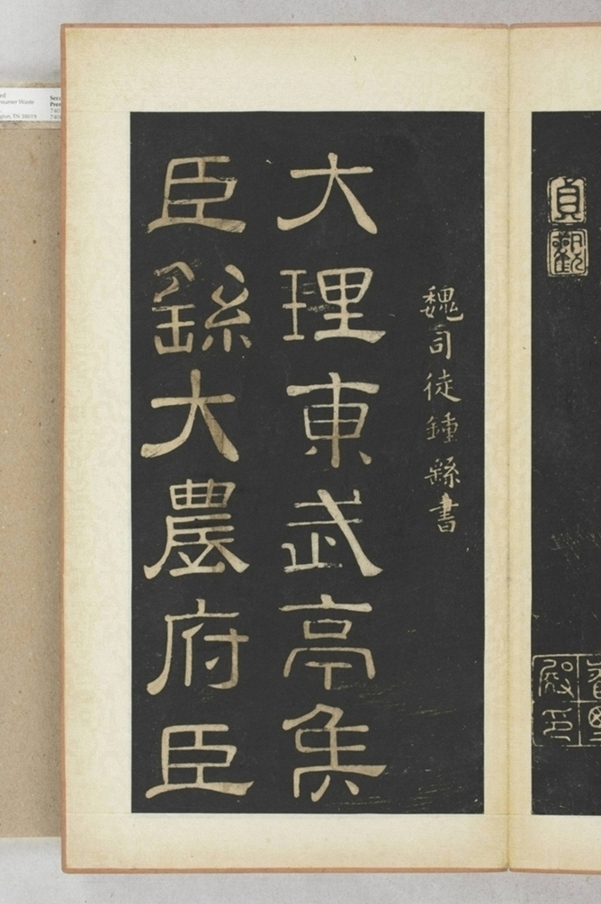 貞觀
魏司徒鍾繇書
大理東武亭侯
臣繇大農府臣